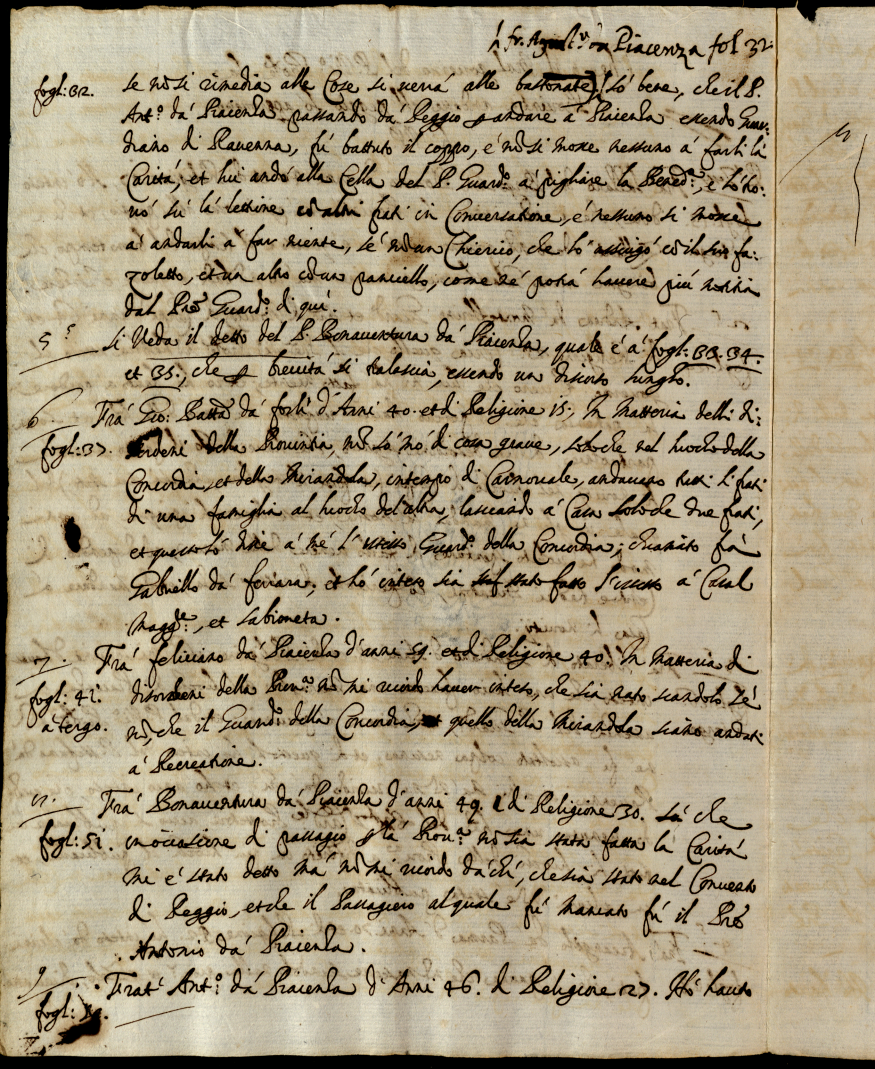 fr. da Piacenza fol 32
fogl: 32. se nō si rimedia alle Cose si verrá alle bastonate) só bene, che il P.
Ant.º dá Piacenza passando dá Reggio p andare á Piacenza essendo Guar-
diano di Ravenna, fú battuto il coppo, é nō si mosse nessuno á farli la
Caritá, et lui andó alla Cella del P. Guard.º á pigliare la Bened.ª, é
nó sú la lettine cō altri frati in Conversatione, é nessuno si mosse
á andarli á far niente, se nō un Chierico, che ló asciugó cō il suo fa:
zoletto, et un altro cō un paniello, come ne potrá havere piú notitia
dal Prē Guard.º di quí.
5 Si Veda il detto del P. Bonaventura dá Piacenza, quale é á fogl: 33. 34.
et 35:, che p brevitá si tralascia, essendo un discorso lungho.
6 Frá Gio: Battā dá forlí d'Anni 40. et di Religione 15:, In Matteria delli di:
fogl: 37. sordeni della Provintia, nō só nó di cosa grave, solo che nel luocho della
Concordia, et della Mirandola, in tempo di Carnovale, andavano tutti li frati
di una famiglia al luocho del'altra, lasciando á Casa solo che due frati,
et questo ló disse á mé l'istesso Guard.º della Concordia; chiamato frá
Gabriello dá ferrara; et hó inteso sia stato fatto l'istesso á Casal
Magg.re, et Sabioneta.
7. Frá feliciano dá Piacenza d'anni 59. et di Religione 40. In Matteria di
fogl: 41. disordeni della Prov.ª nō mi ricordo haver inteso, che sia nato scandolo, sé
á tergo. nō, che il Guard.º della Concordia, et quello della Mirandola siano andati
á Recreatione.
Frá Bonaventura dá Piacenza d'anni 49. é di Religione 30. Sá che
fogl: 51. in occasione di passagio p la Prov.ª nō sia stata fatta la Caritá
mi é stato detto má nō mi ricordo dá chí, che sia stato nel Convento
di Reggio, et che il Passagiero al quale fú mancato fú il Prē
Antonio dá Piacenza.
9 Frat' Ant.º dá Piacenza d'Anni 46. di Religione 27. Hó hauto
fogl: